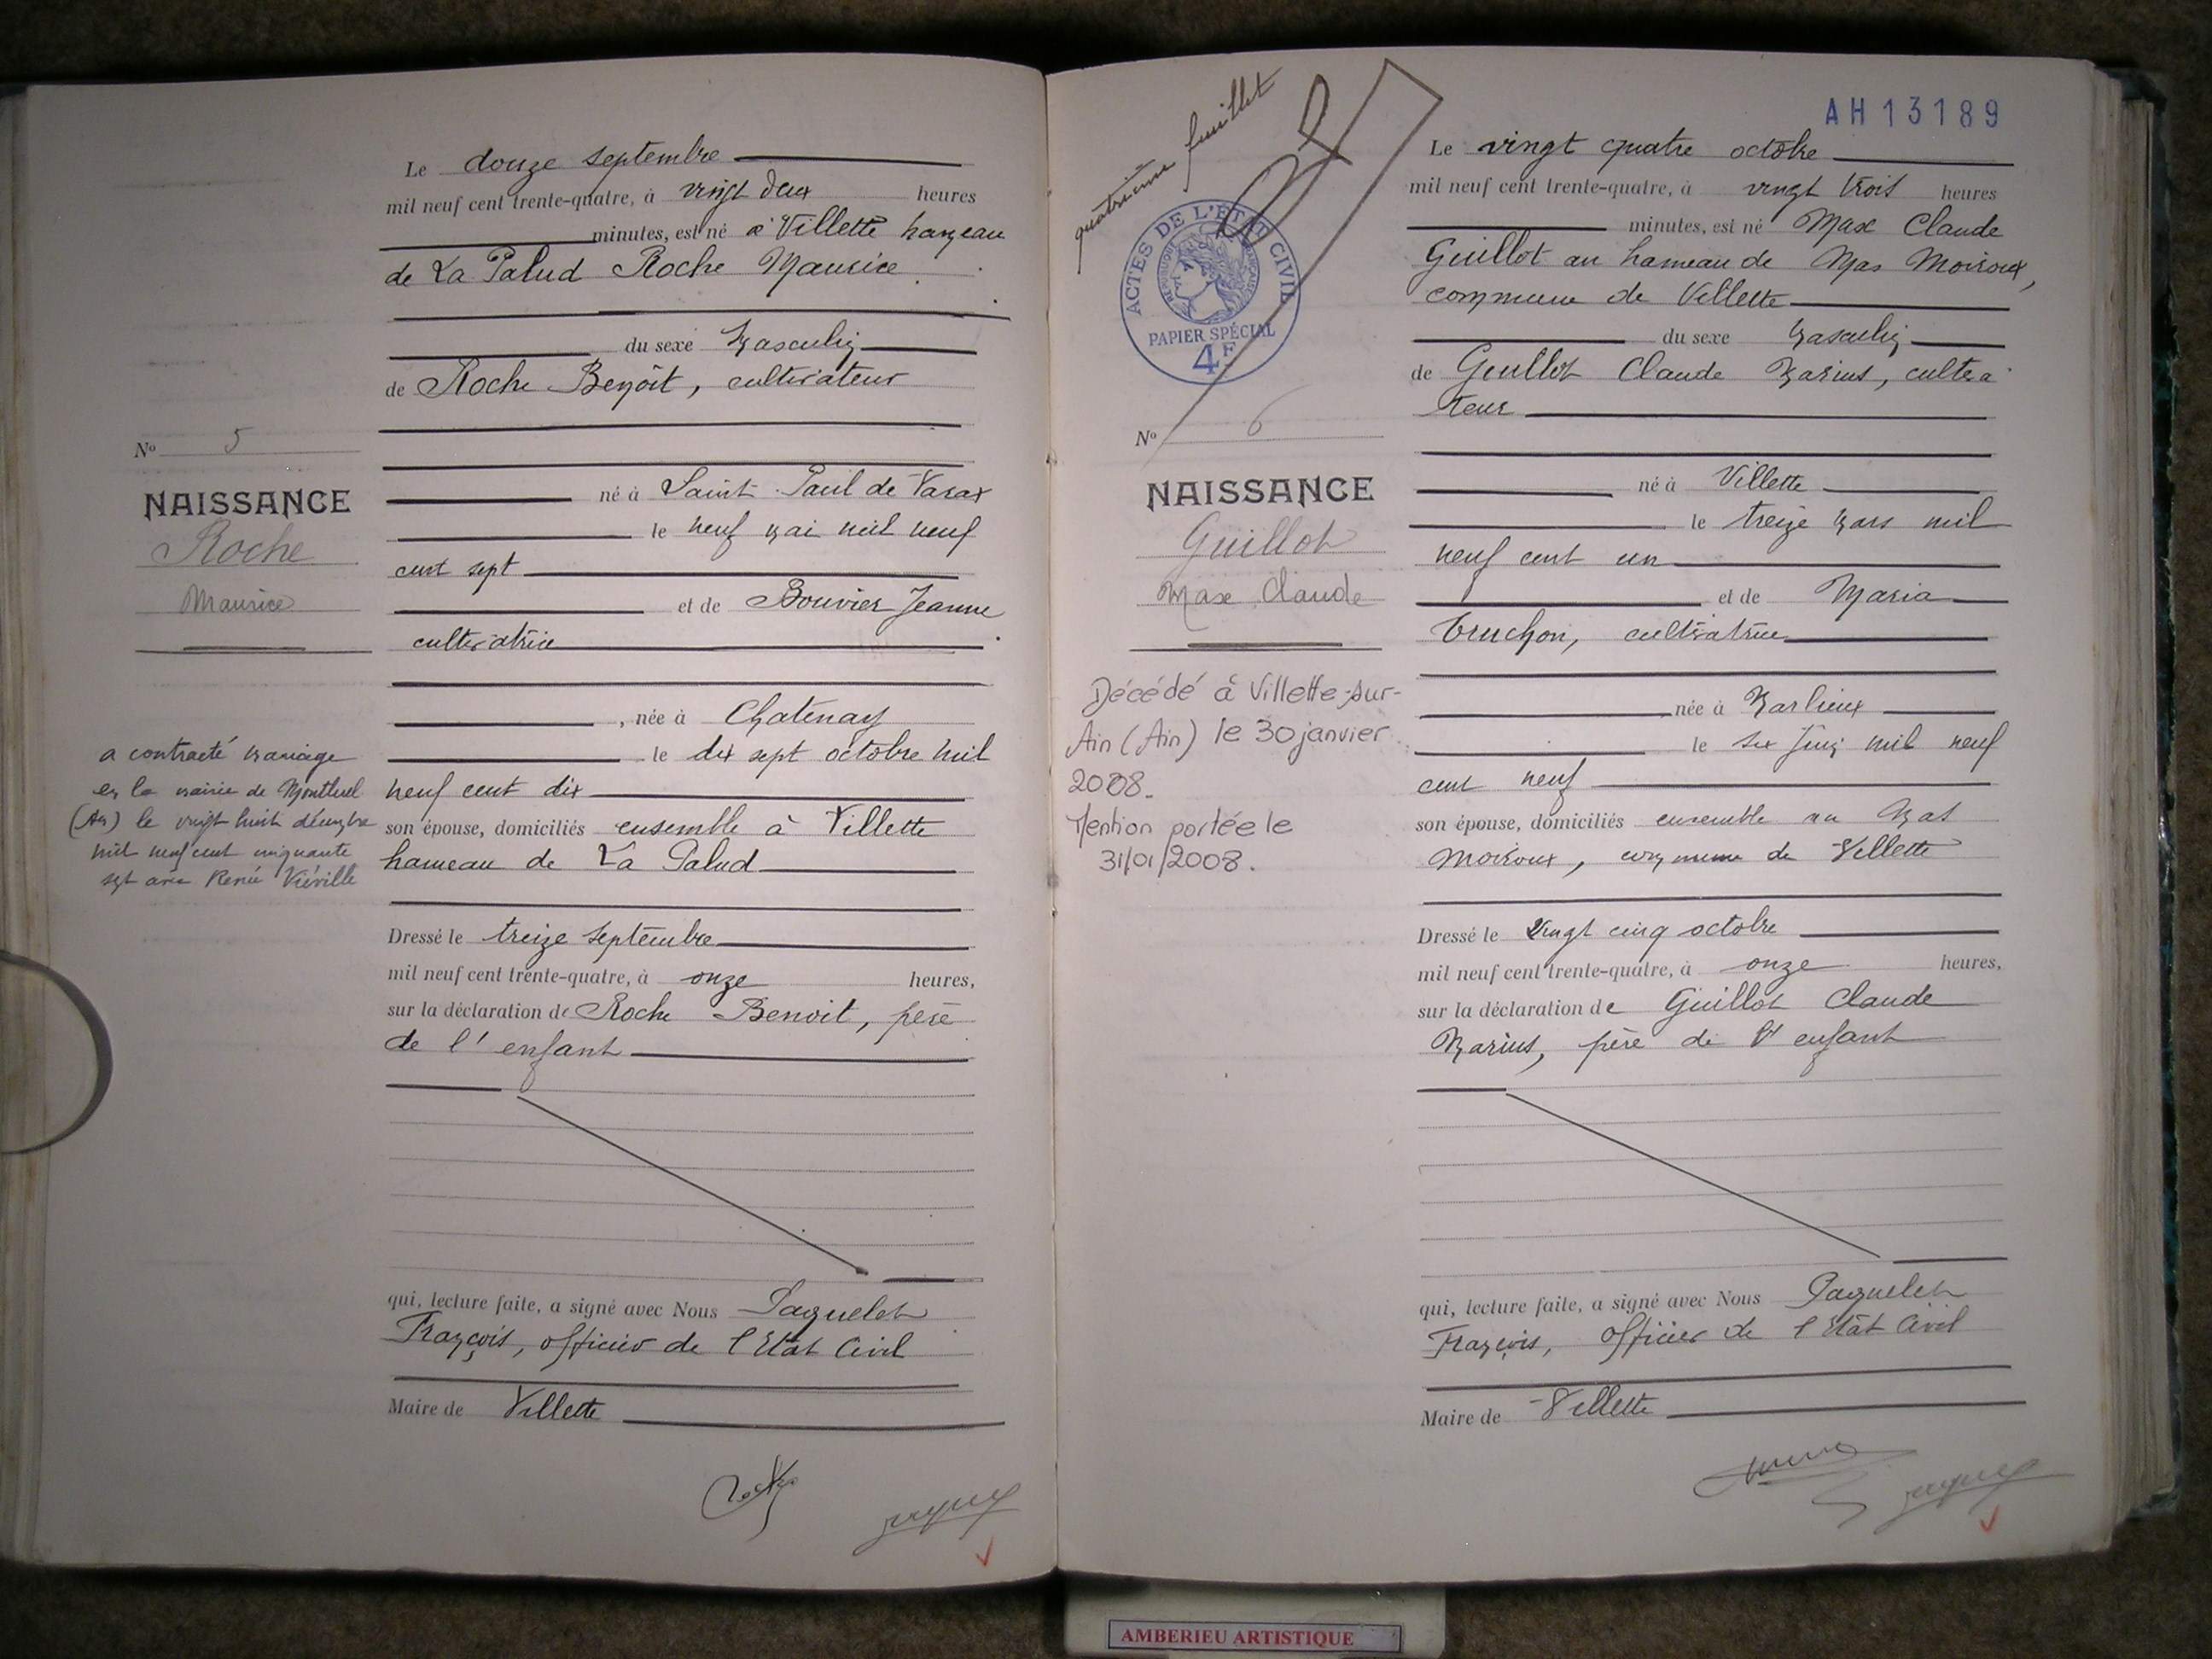 Le douze septembre
mil neuf cent trente-quatre, à vingt deux heures
minutes, est né à Villette hameau
de La Palud Roche Maurice
du sexe masculin
de Roche Benoît, cultivateur
né à Saint Paul de Varax
le neuf mai mil neuf
cent sept
et de Bouvier Jeanne
cultivatrice
, née à Chatenay
le dix sept octobre mil
neuf cent dix
son épouse, domiciliés ensemble à Villette
hameau de La Palud
Dressé le treize septembre
mil neuf cent trente-quatre, à onze heures,
sur la déclaration de Roche Benoit, père
de l'enfant
qui, lecture faite, a signé avec Nous Paquelet
François, officier de l'Etat Civil
Maire de Villette
No 5
NAISSANCE
Roche
Maurice
a contracté mariage
en la mairie de Montluel
(Ain) le vingt huit décembre
mil neuf cent cinquante
sept avec Renée
quatrième feuillet
ACTES DE L'ÉTAT CIVIL
RÉPUBLIQUE FRANÇAISE
PAPIER SPÉCIAL
4F
No 6
NAISSANCE
Guillot
Max Claude
Décédé à Villette-sur-
Ain (Ain) le 30 janvier
2008.
Mention portée le
31/01/2008.
AH 13189
Le vingt quatre octobre
mil neuf cent trente-quatre, à vingt trois heures
minutes, est né Max Claude
Guillot au hameau de Mas Moiroux,
commune de Villette
du sexe masculin
de Guillot Claude Marius, cultiva
teur
né à Villette
le treize mars mil
neuf cent un
et de Maria
Truchon, cultivatrice
née à Marlieux
le six juin mil neuf
cent neuf
son épouse, domiciliés ensemble au Mas
Moiroux, commune de Villette
Dressé le vingt cinq octobre
mil neuf cent trente-quatre, à onze heures,
sur la déclaration de Guillot Claude
Marius, père de l'enfant
qui, lecture faite, a signé avec Nous Paquelet
François, officier de l'Etat Civil
Maire de Villette
AMBERIEU ARTISTIQUE